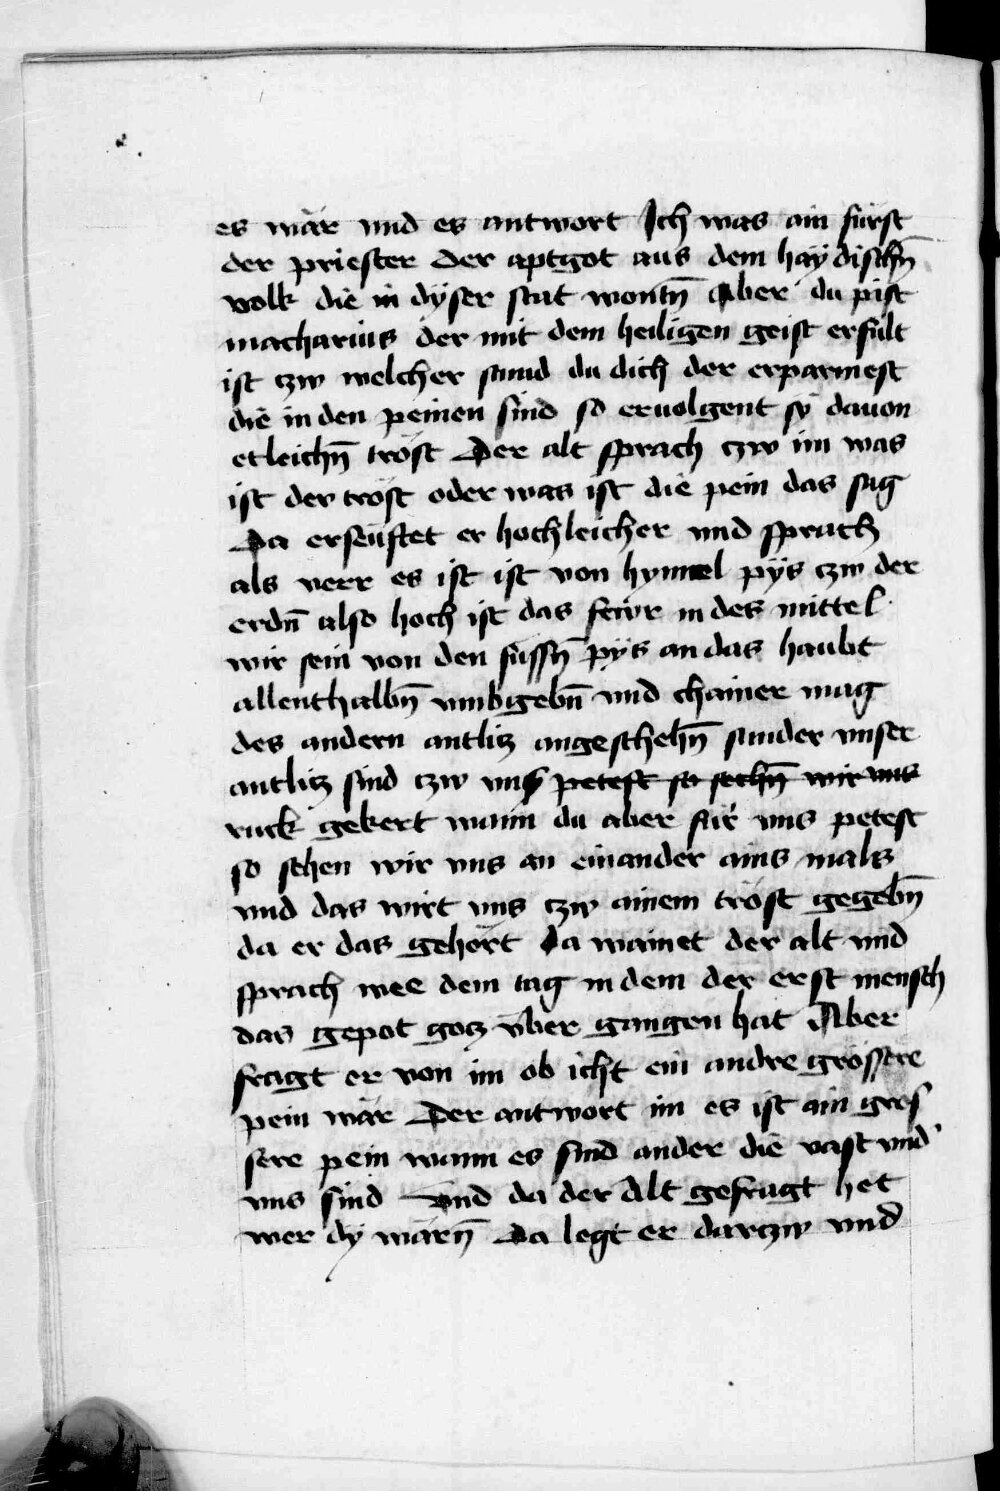 es wär vnd es antwort Ich was ain fürst
der priester der aptgot aus dem haÿdischn̄
volk die in dÿser stat wontn̄ Aber du pist
macharius der mit dem heiligen geist erfült
ist czw welcher stund du dich der erparmest
die in den peinen sind so eruolgent sÿ dauon
etleichn̄ tröst Der alt sprach czw im was
ist der tröst oder was ist die pein das sag
Da erseüftet er hochleicher vnd sprach
als verr es ist ist von hymel pÿs czw der
erdn̄ also hoch ist das fewr in des mittel
wir sein von den füssn̄ pÿs an das haubt
allenthalbn̄ vmbgebn̄ vnd chainer mag
des andern antlitz angeschehn̄ sunder vnser
antlitz sind czw vns petest so sechn̄ wir vns
ruck gekert wann du aber für vns petest
so sehen wir vns an einander ains mals
vnd das wirt vns czw ainem tröst gegebn̄
da er das gehört da wainet der alt vnd
sprach wee dem tag in dem der erst mensch
das gepot gotz vber gangen hat Aber
fragt er von im ob icht ein andre grössere
pein wär Der antwort im es ist ain gros
sere pein wann es sind ander die vast vnd'
vns sind Vnd da der Alt gefragt het
wer dÿ wärn̄ Da legt er darczw vnd